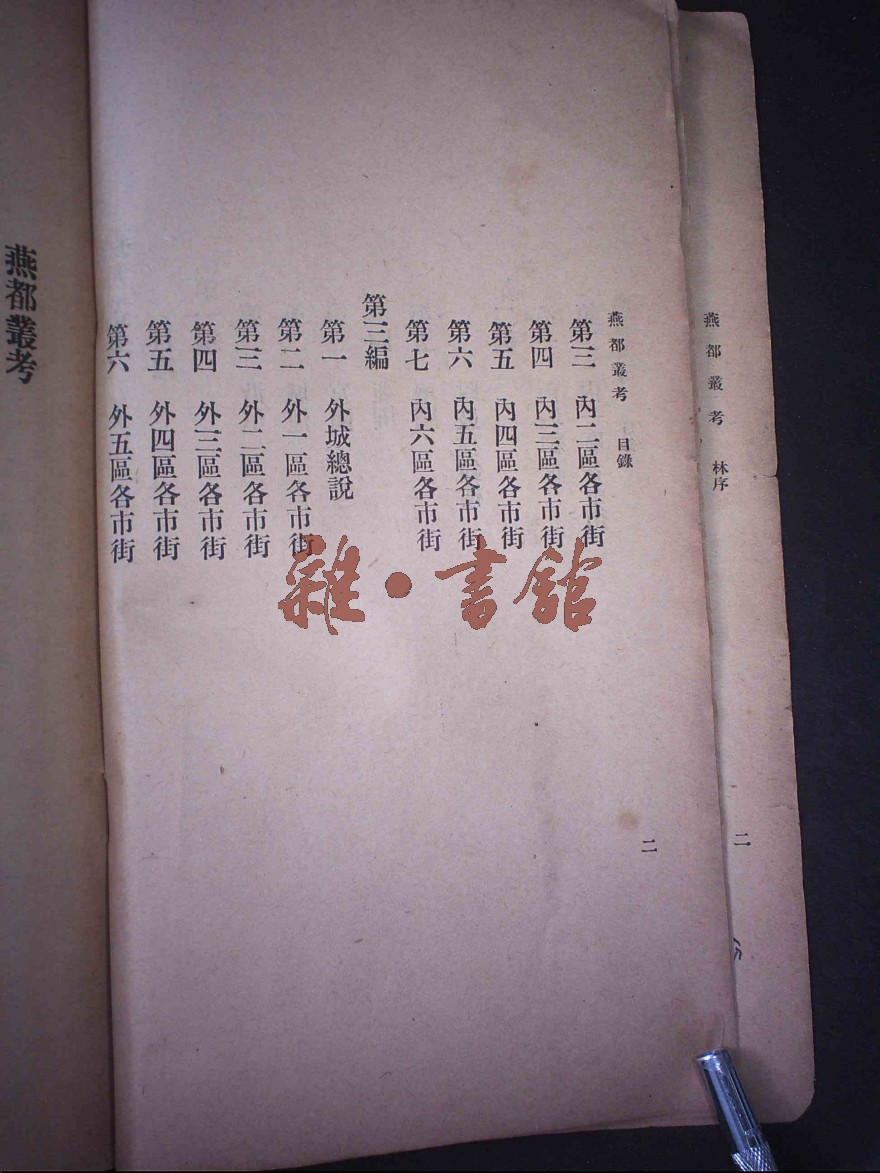 燕都叢考 林序
二
燕都叢考 目錄
二
第三 內二區各市街
第四 內三區各市街
第五 內四區各市街
第六 內五區各市街
第七 內六區各市街
第三編
第一 外城總說
第二 外一區各市街
第三 外二區各市街
第四 外三區各市街
第五 外四區各市街
第六 外五區各市街
燕都叢考
雜·書館